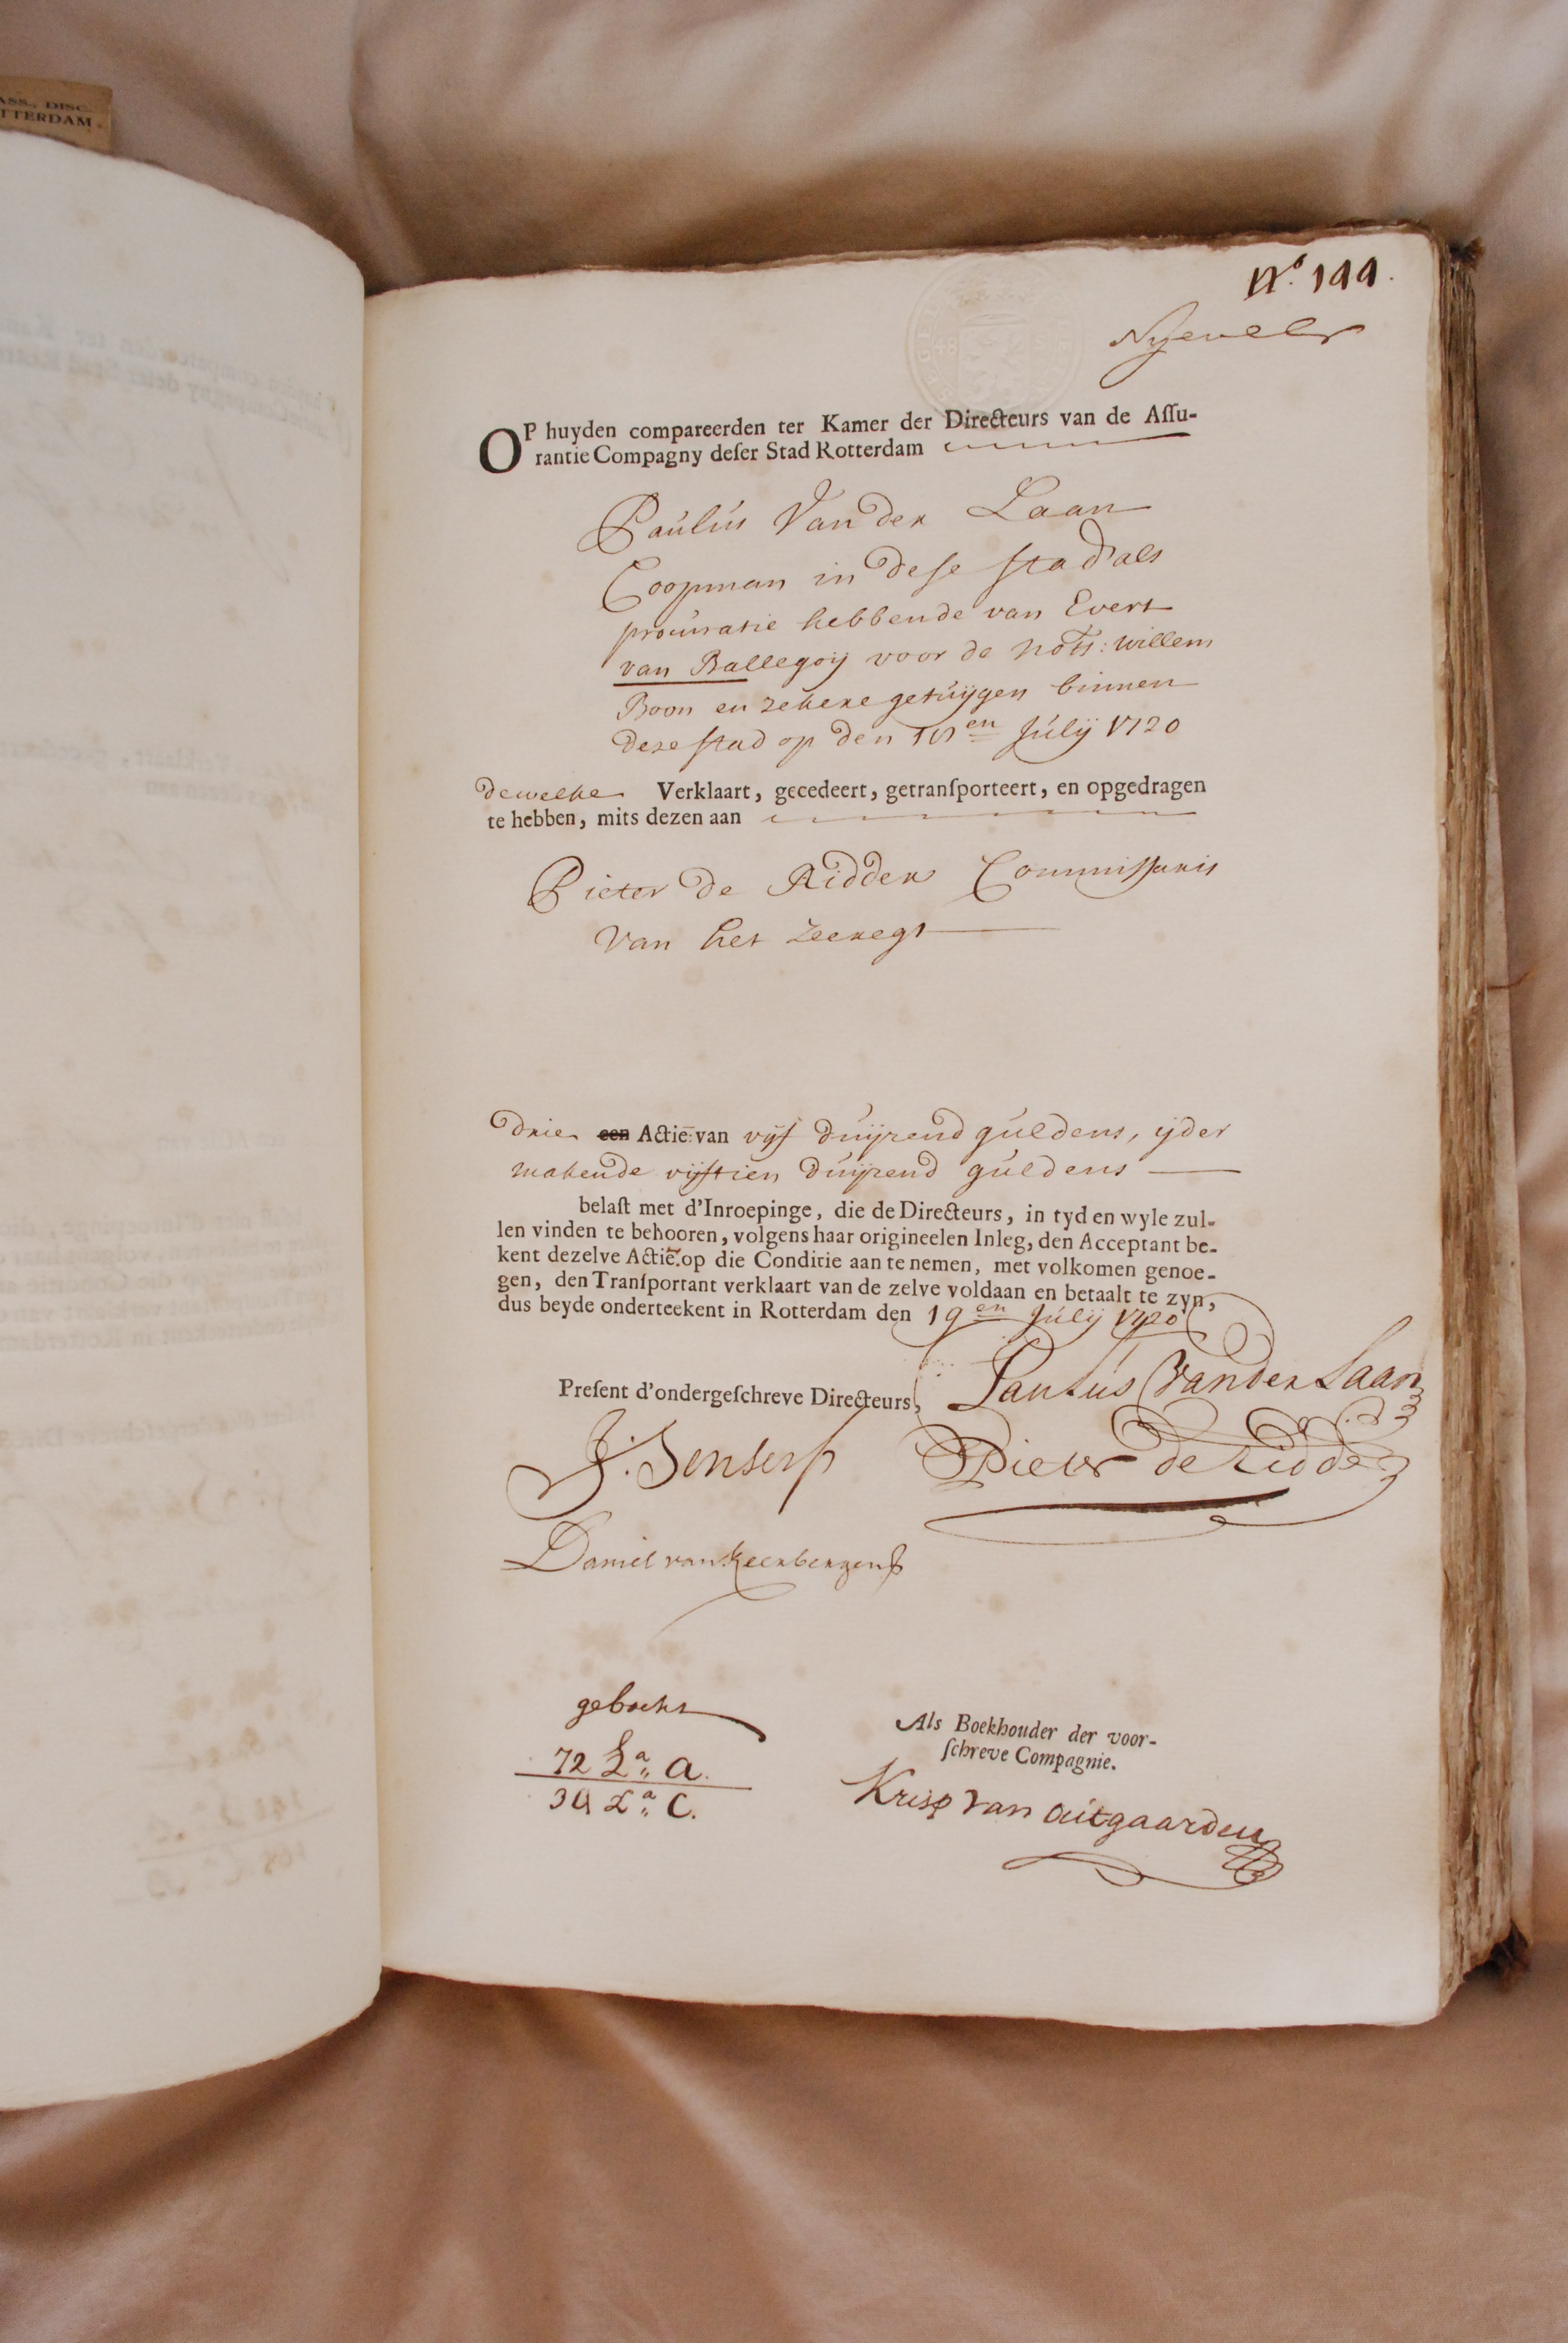 ASS., DISC.
TTERDAM.
N.º 144.
Nyevelt
OP huyden compareerden ter Kamer der Directeurs van de Aſſu-
rantie Compagny deſer Stad Rotterdam
Paulus Van der Laan
Coopman in dese stad als
procuratie hebbende van Evert
van Ballegoij voor de nots: willem
Boon en zekere getuijgen binnen
deze stad op den en Julij 1720
dewelke Verklaart, gecedeert, getranſporteert, en opgedragen
te hebben, mits dezen aan
Pieter de Ridder Commissaris
van het Zeeregt
drie een Actie: van vijf duijzend guldens, ijder
makende vijftien duijzend guldens
belaſt met d'Inroepinge, die de Directeurs, in tyd en wyle zul-
len vinden te behooren, volgens haar origineelen Inleg, den Acceptant be-
kent dezelve Actie. op die Conditie aan te nemen, met volkomen genoe-
gen, den Tranſportant verklaart van de zelve voldaan en betaalt te zyn,
dus beyde onderteekent in Rotterdam den 19en Julij 1720
Preſent d'ondergeſchreve Directeurs,
Paulus Van der Laan
J. Senserf
Pieter de Ridder
Daniel van
geboekt
72 La. A.
34 La. C.
Als Boekhouder der voor-
ſchreve Compagnie.
Krisp van Uitgaarden